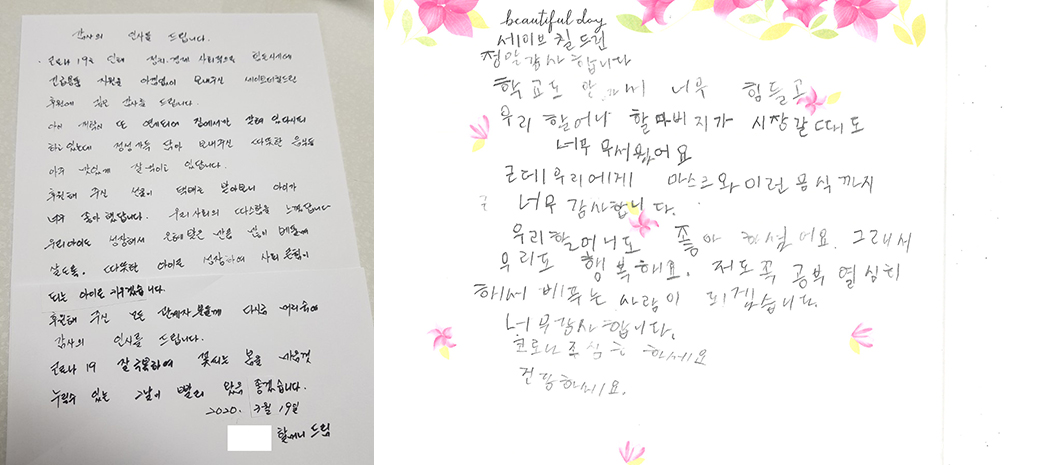 감사의 인사를 드립니다.
코로나 19로 인해 정치·경제 사회적으로 힘든시기에
긴급용품 지원을 아낌없이 보내주신 세이브더칠드런
후원에 깊은 감사를 드립니다.
아이 개학이 또 연기되어 집에서만 갇혀 있다시피
하고 있는데 정성 가득 담아 보내주신 따뜻한 음식을
아주 맛있게 잘 먹이고 있답니다.
후원해 주신 선물이 택배로 받아보니 아이가
너무 좋아 했답니다. 우리 사회의 따스함을 느끼답니다
우리아이도 성장해서 은혜 맞은 만큼 많이 베풀며
살도록. 따뜻한 아이로 성장하여 사회 은혜이
되는 아이로 키우겠습니다
후원해 주신 모든 관계자 분들께 다시금 머리숙여
감사의 인사를 드립니다.
코로나 19 잘 극복하여 꽃씨는 봄을 마음껏
누릴수 있는 그날이 빨리 왔음 좋겠습니다.
2020. 3월 19일
할머니 드림
beautiful day
세이브 칠드런
정말감사합니다
학교도 안가서 너무 힘들고
우리 할어니 할따버지가 시장갈때도
너무 무서웠어요
근데 우리에게 마스크와 이런 음식까지
너무 감사합니다.
우리할어니도 좋아 하셨어요. 그래서
우리도 행복해요. 저도 꼭 공부 열심히
해서 베푸는 사람이 되겠습니다.
너무감사합니다.
코로나 조심히 하세요
건강하세요.